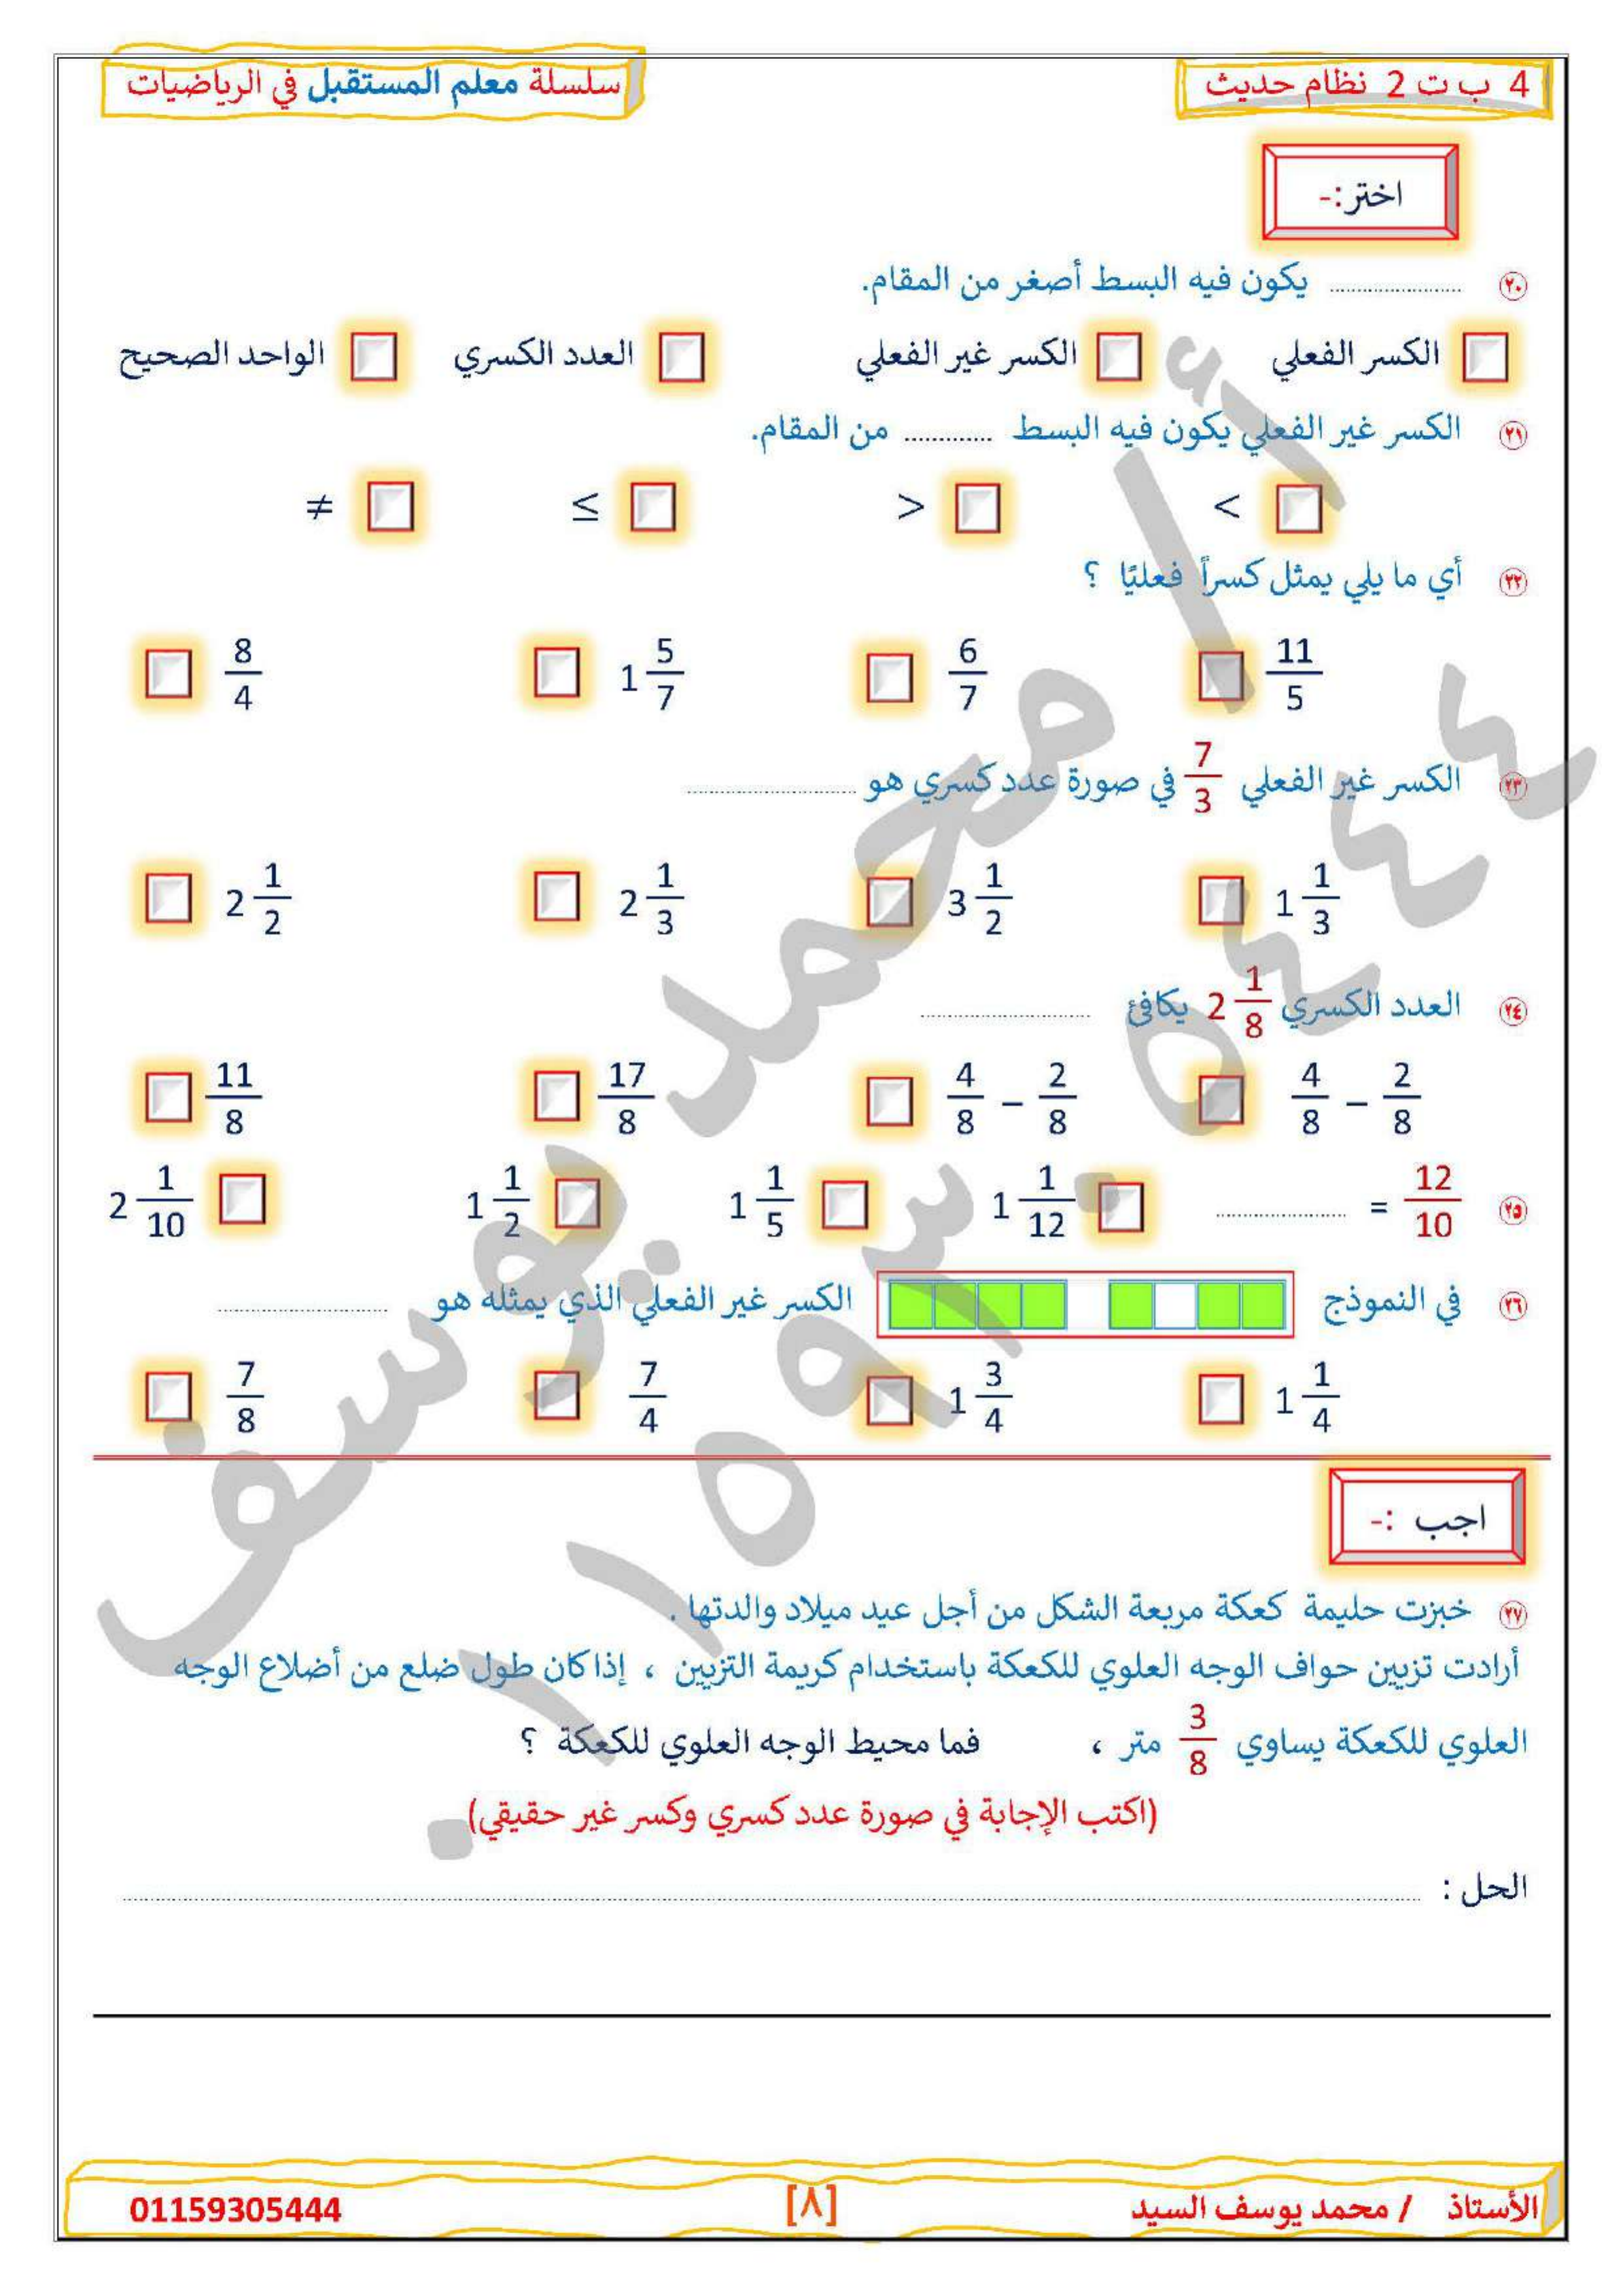 4 ب ت 2 نظام حديث
سلسلة معلم المستقبل في الرياضيات
اختر:-
٢٠ .................... يكون فيه البسط أصغر من المقام.
الكسر الفعلي الكسر غير الفعلي العدد الكسري الواحد الصحيح
٢١ الكسر غير الفعلي يكون فيه البسط ............. من المقام.
< > ≤ ≠
٢٢ أي ما يلي يمثل كسراً فعليًا ؟
11/5 6/7 1 5/7 8/4
٢٣ الكسر غير الفعلي 7/3 في صورة عدد كسري هو ....................
1 1/3 3 1/2 2 1/3 2 1/2
٢٤ العدد الكسري 2 1/8 يكافئ ....................
4/8 – 2/8 4/8 – 2/8 17/8 11/8
٢٥ 12/10 = .................... 1 1/12 1 1/5 1 1/2 2 1/10
٢٦ في النموذج الكسر غير الفعلي الذي يمثله هو ....................
1 1/4 1 3/4 7/4 7/8
اجب :-
٢٧ خبزت حليمة كعكة مربعة الشكل من أجل عيد ميلاد والدتها .
أرادت تزيين حواف الوجه العلوي للكعكة باستخدام كريمة التزيين ، إذا كان طول ضلع من أضلاع الوجه
العلوي للكعكة يساوي 3/8 متر ، فما محيط الوجه العلوي للكعكة ؟
(اكتب الإجابة في صورة عدد كسري وكسر غير حقيقي)
الحل : ....................
أ / محمد يوسف
٠١١٥٩٣٠٥٤٤٤
الأستاذ / محمد يوسف السيد
[٨]
01159305444